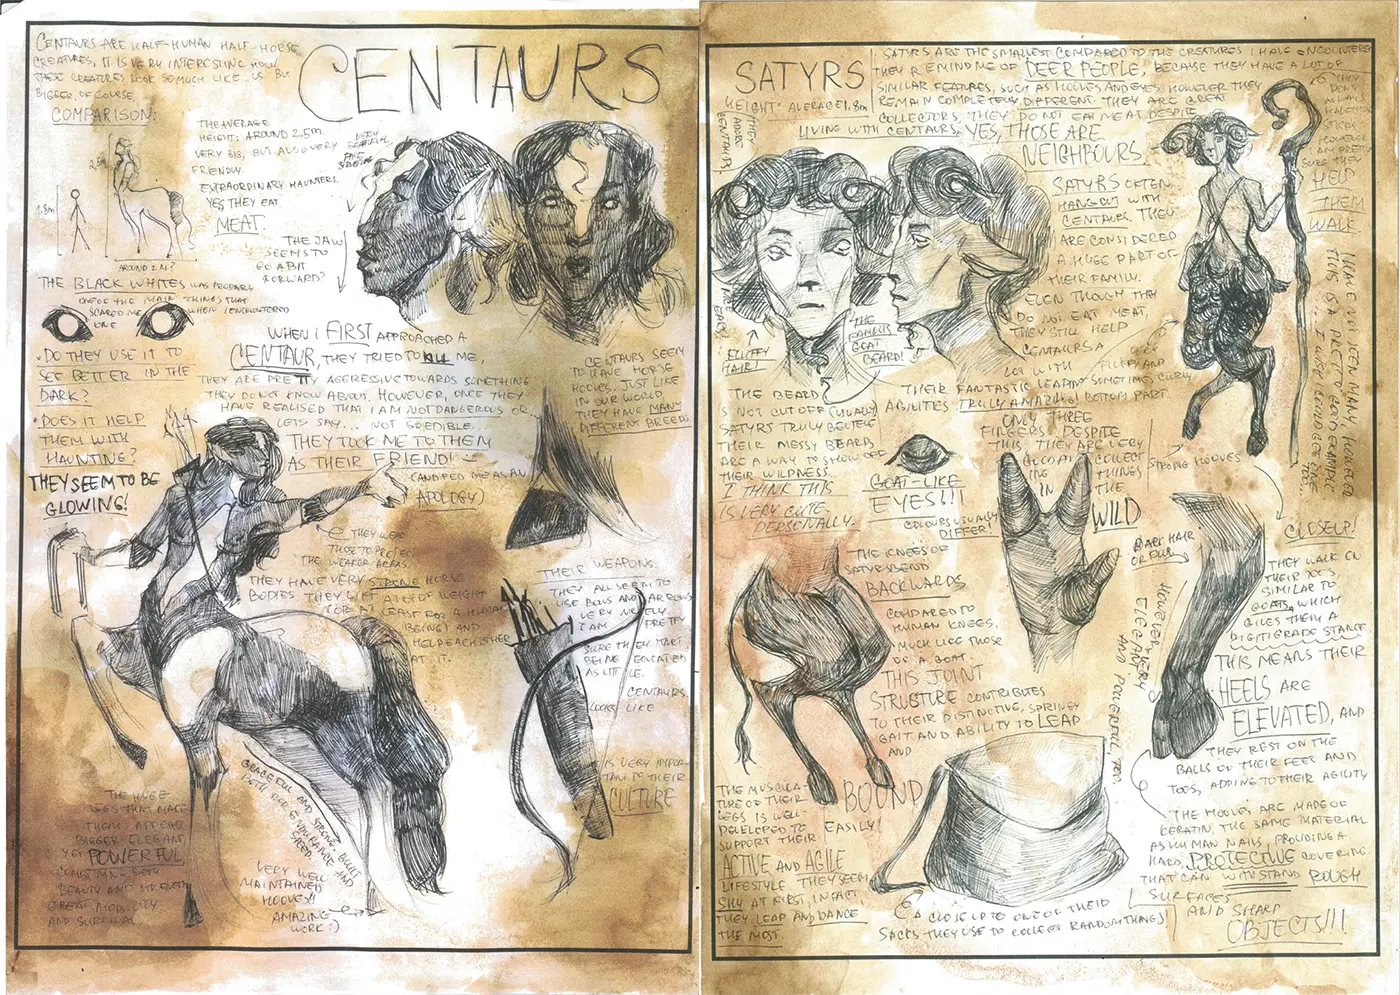 CENTAURS ARE HALF-HUMAN HALF-HORSE
CREATURES, IT IS VERY INTERESTING HOW
THESE CREATURES LOOK SO MUCH LIKE US BUT
BIGGER, OF COURSE.
COMPARISON.
CENTAURS
THE AVERAGE
HEIGHT: AROUND 2,5m.
VERY BIG, BUT ALSO VERY
FRIENDLY.
EXTRAORDINARY HAUNTERS.
YES, THEY EAT
MEAT.
2,5m
1.8m
AROUND 2M?
VERY
BEAUTIFUL
FACE
THE JAW
SEEMS TO
BE A BIT
FORWARD?
THE BLACK WHITES WAS PROBABLY
ONE OF THE MAIN THINGS THAT
SCARED ME WHEN I ENCOUNTERED
ONE
• DO THEY USE IT TO
SEE BETTER IN THE
DARK?
• DOES IT HELP
THEM WITH
HAUNTING?
THEY SEEM TO BE
GLOWING!
WHEN I FIRST APPROACHED A
CENTAUR, THEY TRIED TO KILL ME,
THEY ARE PRETTY AGGRESSIVE TOWARDS SOMETHING
THEY DO NOT KNOW ABOUT. HOWEVER, ONCE THEY
HAVE REALISED THAT I AM NOT DANGEROUS OR,
LETS SAY... NOT SO EDIBLE.
THEY TOOK ME TO THEM
AS THEIR FRIEND!
(AND FED ME AS AN
APOLOGY)
CENTAURS SEEM
TO HAVE HORSE
HOOVES. JUST LIKE
IN OUR WORLD
THEY HAVE MANY
DIFFERENT BREEDS
THEY WEAR
THOSE TO PROTECT
THE WEAKER AREAS.
THEY HAVE VERY STRONG HORSE
BODIES. THEY LIFT A LOT OF WEIGHT
(OR AT LEAST FOR A HUMAN
BEING) AND
HELP EACH OTHER
AT IT.
THEIR WEAPONS.
THEY ALL SEEM TO
USE BOWS AND ARROWS
VERY NICELY.
I AM PRETTY
SURE THEY START
BEING EDUCATED
AS LITTLE
CENTAURS.
LOOKS LIKE
IS VERY IMPOR-
TANT TO THEIR
CULTURE
THE HUGE
LEGS THAT MAKE
THEM APPEAR
BIGGER, ELEGANT,
YET POWERFUL,
COMBINING BOTH
BEAUTY AND STRENGTH
GREAT MOBILITY
AND SURVIVAL
GRACEFUL AND STRONG, BUILT
BOTH FOR ENDURANCE AND
SPEED.
VERY WELL
MAINTAINED
HOOVES!!
AMAZING
WORK :)
SATYRS
HEIGHT: AVERAGE 1,8m
THEY
ADORE
CENTAURS
SATYRS ARE THE SMALLEST COMPARED TO THE CREATURES I HAVE ENCOUNTERED
THEY REMIND ME OF DEER PEOPLE, BECAUSE THEY HAVE A LOT OF
SIMILAR FEATURES, SUCH AS HOOVES AND EYES. HOWEVER THEY
REMAIN COMPLETELY DIFFERENT. THEY ARE GREAT
COLLECTORS, THEY DO NOT EAT MEAT DESPITE
LIVING WITH CENTAURS. YES, THOSE ARE
NEIGHBOURS.
THEY
DON'T
ALWAYS
HOWEVER
I AM PRETTY
SURE THEY
HELP
THEM
WALK
SATYRS OFTEN
HANG OUT WITH
CENTAURS. THEY
ARE CONSIDERED
A HUGE PART OF
THEIR FAMILY.
EVEN THOUGH THEY
DO NOT EAT MEAT,
THEY STILL HELP
CENTAURS A
LOT WITH
I HAVE NOT SEEN MANY, HOWEVER
THIS IS A PRETTY GOOD EXAMPLE
I WISH I COULD GET ONE
TOO...
FLUFFY
HAIR!
THE
FAMOUS
GOAT
BEARD!
FLUFFY AND
SOMETIMES CURLY
BOTTOM PART
THE BEARD
IS NOT CUT OFF (USUALLY)
SATYRS TRULY BELIEVE
THEIR MESSY BEARD
ARE A WAY TO SHOW OFF
THEIR WILDNESS.
I THINK THIS
IS VERY CUTE
PERSONALLY.
THEIR FANTASTIC LEAPING
ABILITIES. TRULY AMAZING!
GOAT-LIKE
EYES!!!
COLOURS USUALLY
DIFFER!
ONLY THREE
FINGERS. DESPITE
THIS, THEY ARE VERY
GOOD AT COLLECT
ING THINGS
IN THE
WILD
STRONG HOOVES
CLOSEUP!
DARK HAIR
OR FUR
THE KNEES OF
SATYRS BEND
BACKWARDS
COMPARED TO
HUMAN KNEES,
MUCH LIKE THOSE
OF A GOAT.
THIS JOINT
STRUCTURE CONTRIBUTES
TO THEIR DISTINCTIVE, SPRINGY
GAIT AND ABILITY TO LEAP
AND
BOUND
EASILY!
HOWEVER, VERY
ELEGANT
AND POWERFUL, TOO.
THEY WALK ON
THEIR TOES,
SIMILAR TO
GOATS, WHICH
GIVES THEM A
DIGITIGRADE STANCE
THIS MEANS THEIR
HEELS ARE
ELEVATED, AND
THEY REST ON THE
BALLS OF THEIR FEET AND
TOES, ADDING TO THEIR AGILITY
THE HOOVES ARE MADE OF
KERATIN, THE SAME MATERIAL
AS HUMAN NAILS, PROVIDING A
HARD, PROTECTIVE COVERING
THAT CAN WITHSTAND ROUGH
SURFACES
AND SHARP
OBJECTS!!!
THE MUSCULA-
TURE OF THEIR
LEGS IS WELL-
DEVELOPED TO
SUPPORT THEIR
ACTIVE AND AGILE
LIFESTYLE. THEY SEEM
SHY AT FIRST, IN FACT,
THEY LEAP AND DANCE
THE MOST.
A CLOSE UP TO ONE OF THEIR
SACKS THEY USE TO COLLECT RANDOM THINGS!